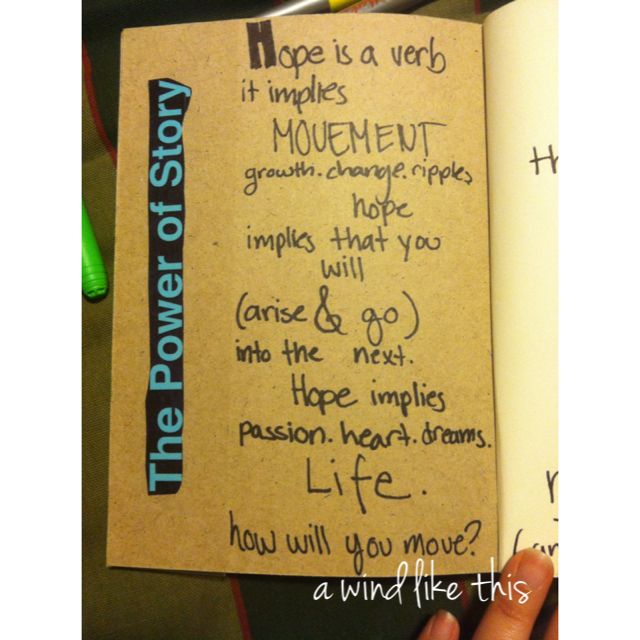 The Power of Story
Hope is a verb
it implies
MOVEMENT
growth.change.ripples
hope
implies that you
will
(arise & go)
into the next.
Hope implies
passion.heart.dreams.
Life.
how will you move?
a wind like this
th
(ar